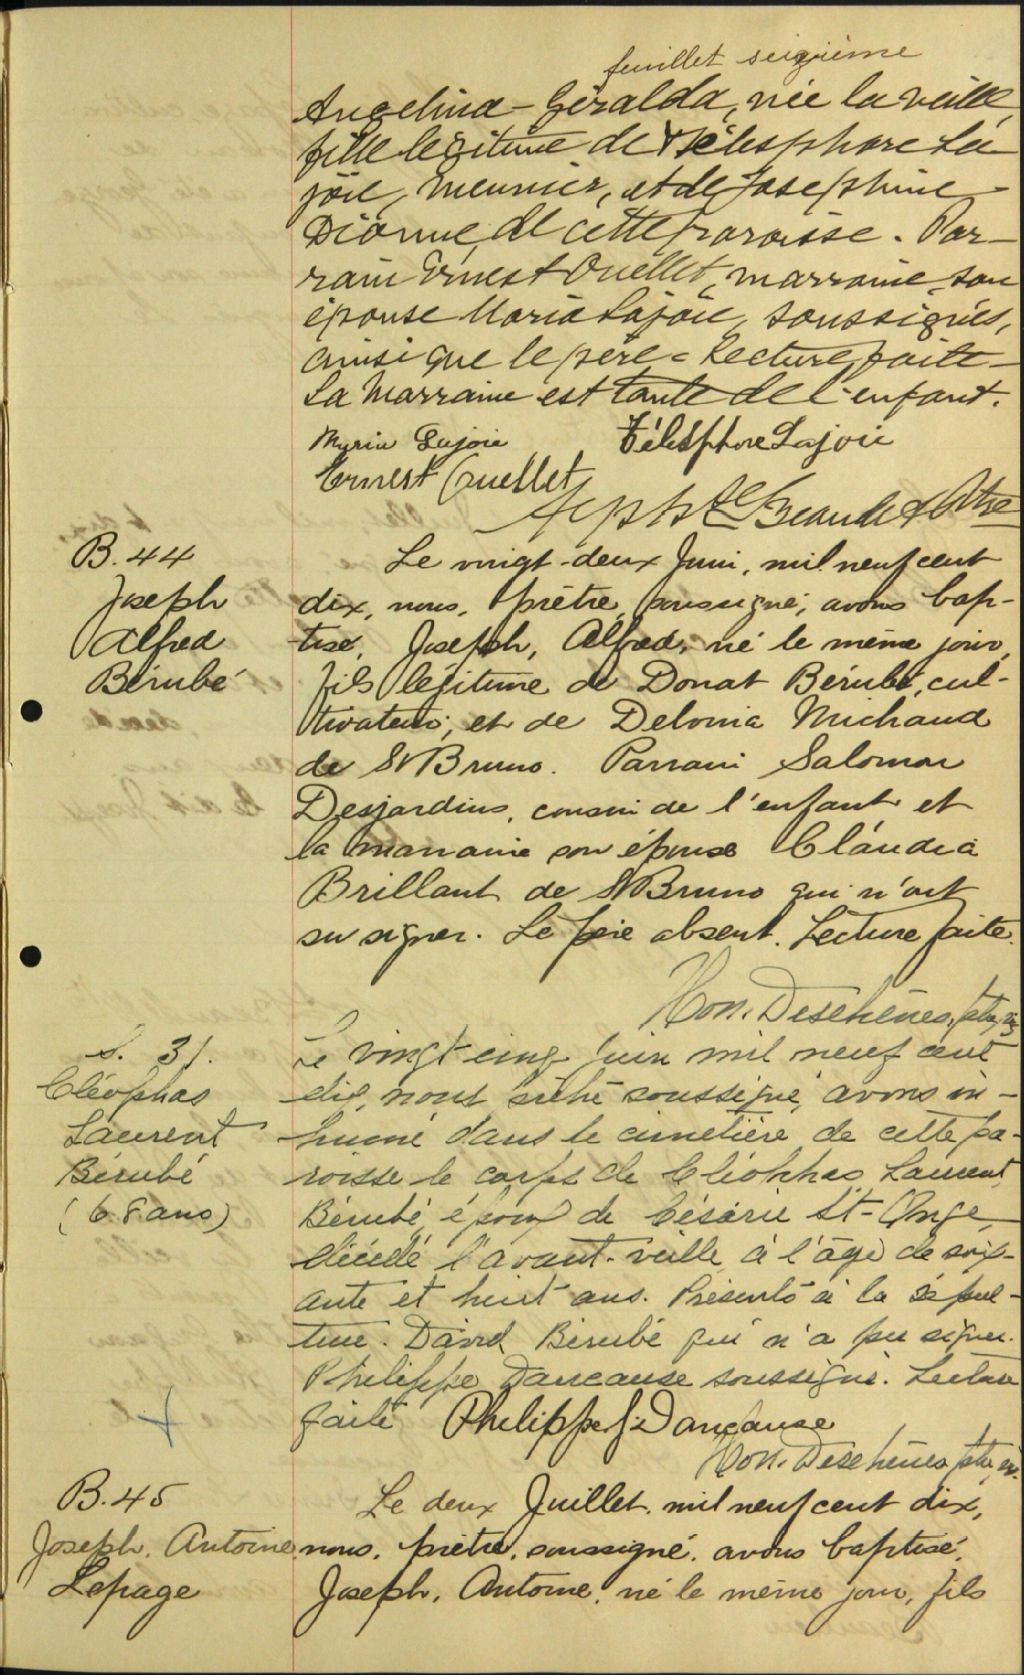 feuillet seizième
Angelina-Géralda, née la veille,
fille légitime de Télesphore La-
joie, meunier, et de Joséphine
Dionne, de cette paroisse. Par-
rain Ernest Ouellet, marraine, son
épouse Maria Lajoie, soussignés,
ainsi que le père = Lecture faite -
La Marraine est tante de l'enfant.
Maria Lajoie Télesphore Lajoie
Ernest Ouellet
Ptre
B. 44
Joseph
Alfred
Bérubé
Le vingt-deux Juin, mil neuf cent
dix, nous, prêtre, soussigné, avons bap-
tisé, Joseph, Alfred, né le même jour,
fils légitime de Donat Bérubé, cul-
tivateur, et de Delvina Michaud
de St Bruno. Parrain Salomon
Desjardins, cousin de l'enfant et
la marraine son épouse Claudia
Brillant de St Bruno qui n'ont
su signer. Le père absent. Lecture faite.
Hon. Deschênes, ptre,
S. 31.
Cléophas
Laurent
Bérubé
(68 ans)
Le vingt cinq juin mil neuf cent
dix, nous prêtre soussigné, avons in-
humé dans le cimetière de cette pa-
roisse le corps de Cléophas Laurent
Bérubé, époux de Césarie St-Onge,
décédé l'avant-veille à l'âge de soix-
ante et huit ans. Présents à la sépul-
ture. David Bérubé qui n'a pu signer.
Philippe Dancause soussigné. Lecture
faite Philippe J. Dancause
Hon. Deschênes ptre,
B. 45
Joseph. Antoine
Lepage
Le deux Juillet mil neuf cent dix,
nous, prêtre, soussigné, avons baptisé,
Joseph, Antoine, né le même jour, fils